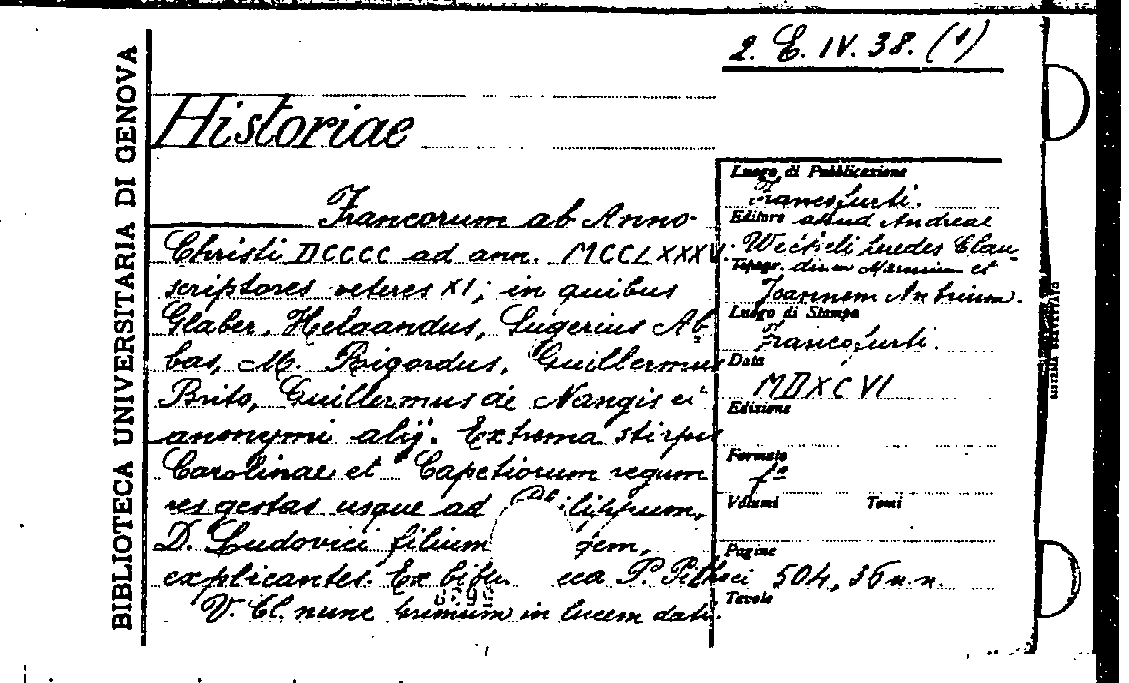 2. E. IV. 38. (1)
BIBLIOTECA UNIVERSITARIA DI GENOVA
Historiae
Francorum ab Anno
Christi DCCCC ad ann. MCCLXXXV.
scriptores veteres XI; in quibus
Glaber, Helgandus, Sugerius Ab
bas, M. Rigordus, Guillermus
Brito, Guillermus de Nangis et
anonymi alij. Extrema stirpis
Carolinae et Capetiorum regum
res gestas usque ad Philippum,
D. Ludovici filium gem,
explicantes. Ex bi eca P. Pithoei
V. Cl. nunc primum in lucem dati.
Luogo di Pubblicazione
Francofurti.
Editore apud Andreae
Wecheli heredes Clau-
Tipogr. dium Marnium et
Joannem Aubrium.
Luogo di Stampa
Francofurti.
Data
MDXCVI
Edizione
Formato
fº
Volumi Tomi
Pagine
504, 36 n. n.
Tavole